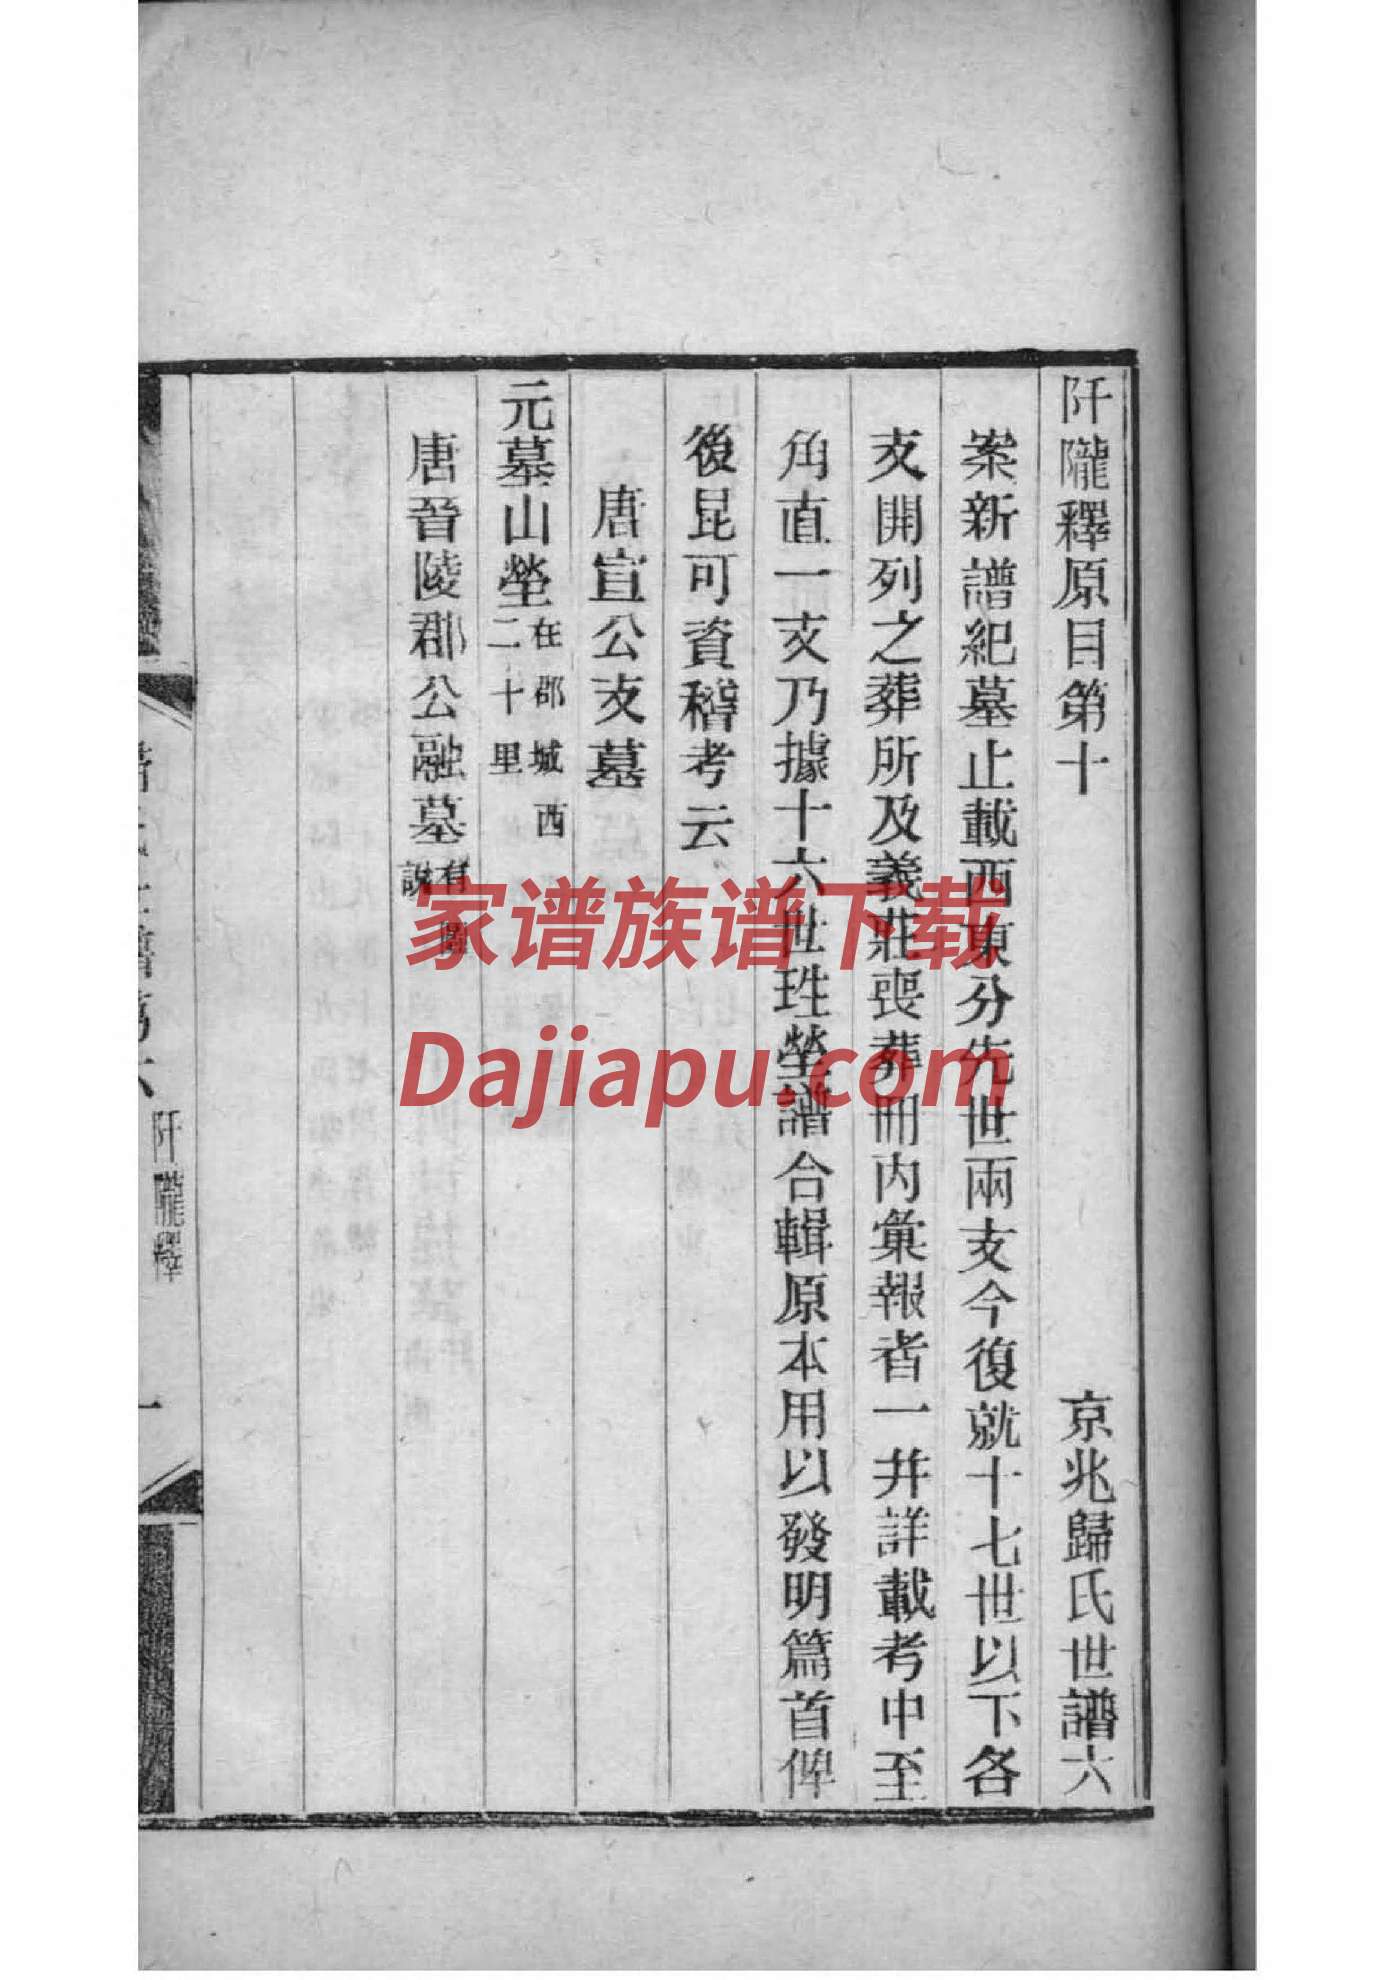 阡隴釋原目第十 京兆歸氏世譜六
案新譜紀墓止載西東分先世兩支今復就十七世以下各
支開列之葬所及義莊喪葬冊內彙報者一并詳載考中至
角直一支乃據十六世珄塋譜合輯原本用以發明篇首俾
後昆可資稽考云
唐宣公支墓
元墓山塋在郡城西
二十里
唐晉陵郡公融墓有圖
說
阡隴釋
一
家谱族谱下载
Dajiapu.com